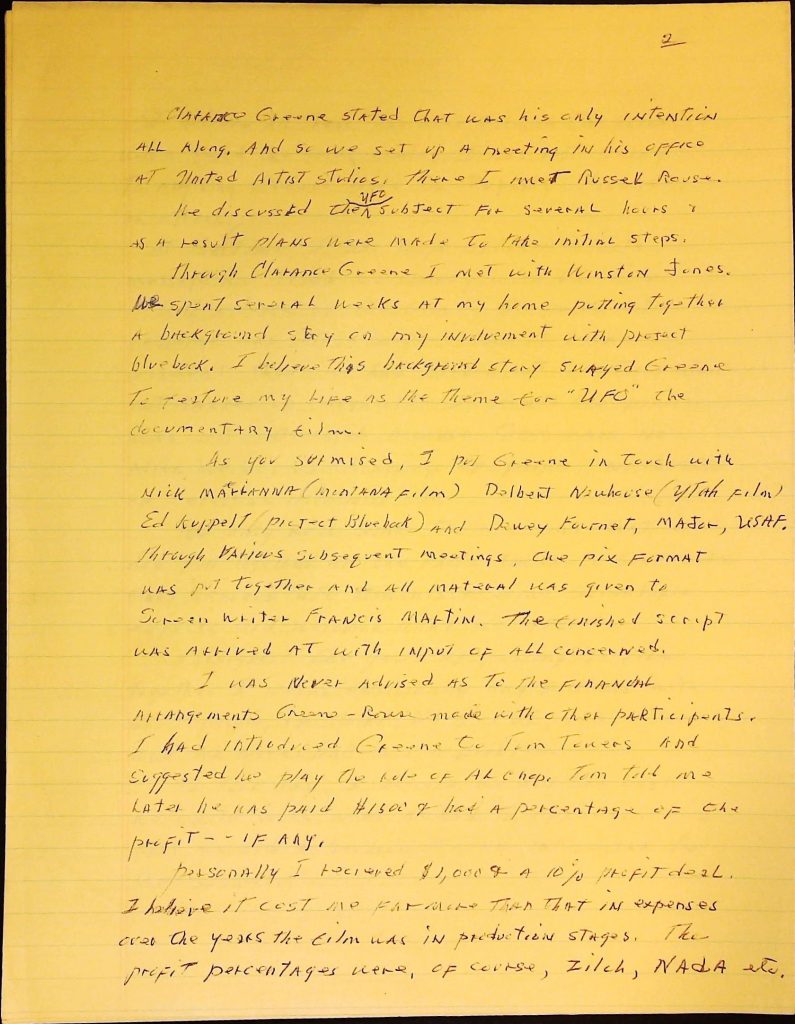 2
Clarance Greene stated that was his only intention
all along. And so we set up a meeting in his office
at United Artist studios. there I met Russell Rouse.
We discussed the UFO subject for several hours &
as a result plans were made to take initial steps.
through Clarance Greene I met with Winston Jones.
We spent several weeks at my home putting together
a background story on my involvement with project
bluebook. I believe this background story swayed Greene
to feature my life as the theme for "UFO" the
documentary film.
As you surmised, I put Greene in touch with
Nick Marianna (montana film) Delbert Newhouse (Utah film)
Ed Ruppelt (project Bluebook) and Dewey Fournet, Major, USAF.
through various subsequent meetings, the pix format
was put together and all material was given to
Screen writer Francis Martin. The finished script
was arrived at with input of all concerned.
I was never advised as to the financial
arrangements Greene-Rouse made with other participents.
I had introduced Greene to Tom Towers and
suggested he play the role of Al Chop. Tom told me
later he was paid & had a percentage of the
profit -- if any.
personally I recieved $1,000 & a 10% profit deal.
I believe it cost me far more than that in expenses
over the years the film was in production stages. The
profit percentages were, of course, Zilch, NADA etc.